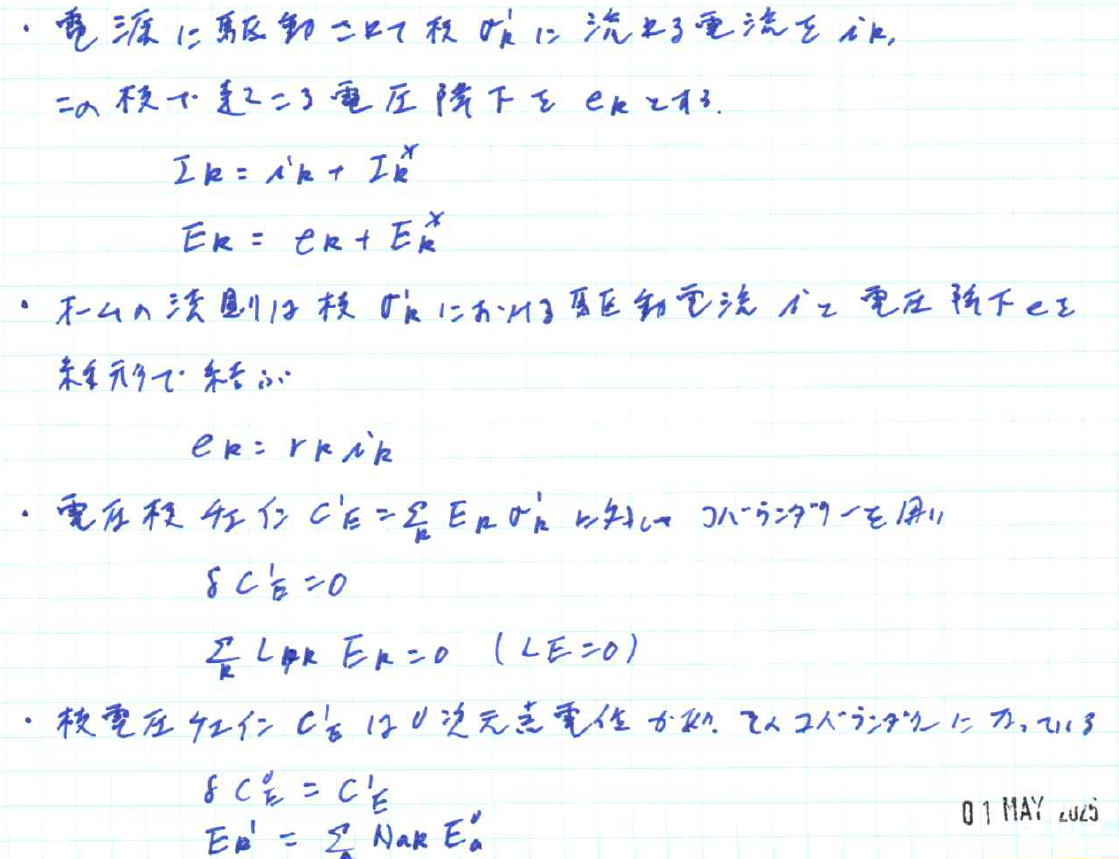 ・電源に駆動されて枝 σ¹ₖ に流れる電流を iₖ,
この枝で起こる電圧降下を eₖ とする.
Iₖ = iₖ + Iₖ*
Eₖ = eₖ + Eₖ*
・オームの法則は枝 σ¹ₖ における駆動電流 i と電圧降下 e を
線形で結ぶ
eₖ = rₖ iₖ
・電圧枝チェイン C¹_E = Σₖ Eₖ σ¹ₖ に対して コバウンダリーを用い
δ C¹_E = 0
Σₖ Lₚₖ Eₖ = 0 (LE = 0)
・枝電圧チェイン C¹_E は 0次元点電位 コバウンダリーになっている
δ C⁰_E = C¹_E
Eₖ¹ = Σₐ Nₐₖ E⁰ₐ
01 MAY 2025